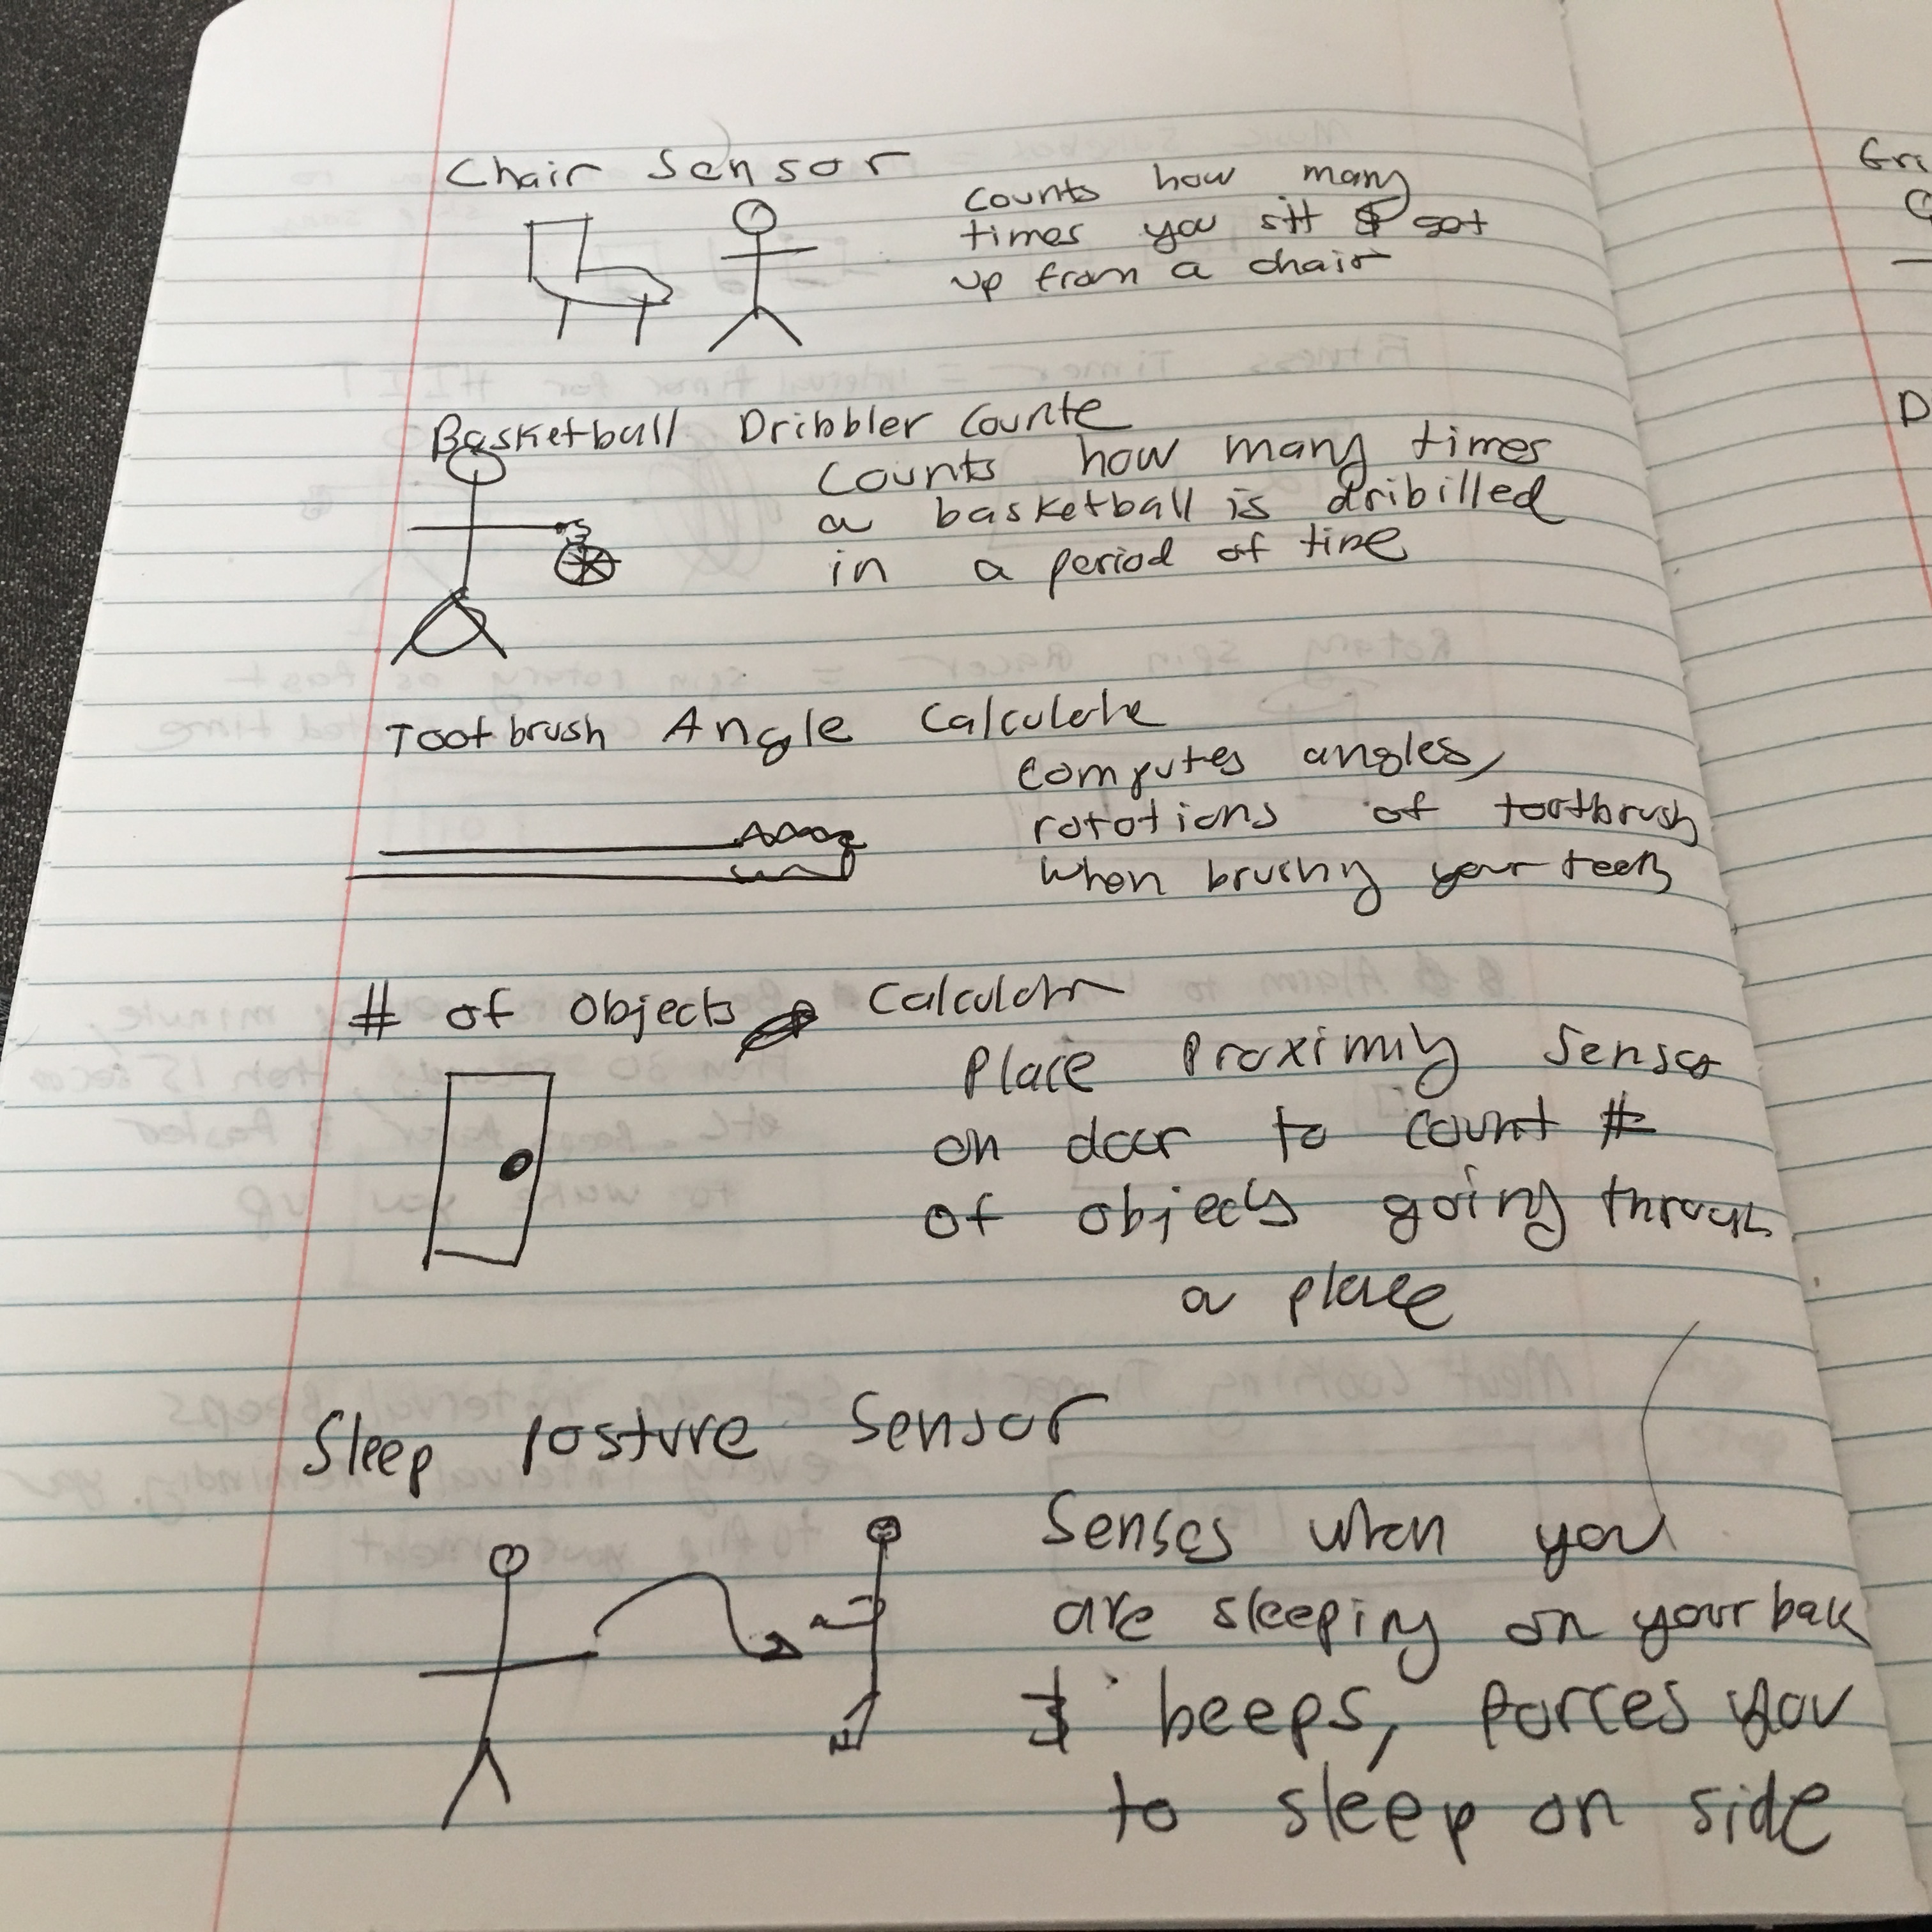 Chair Sensor
Counts how many
times you sit & get
up from a chair
Basketball Dribbler Counte
Counts how many times
a basketball is dribilled
in a period of time
Tootbrush Angle Calculate
computes angles,
rototions of tootbrush
when brushing your teeth
# of Objects Calculator
Place Proximity Sensor
on door to count #
of objects going through
a place
Sleep Posture Sensor
Senses when you
are sleeping on your back
& beeps, forces you
to sleep on side
Gri
D